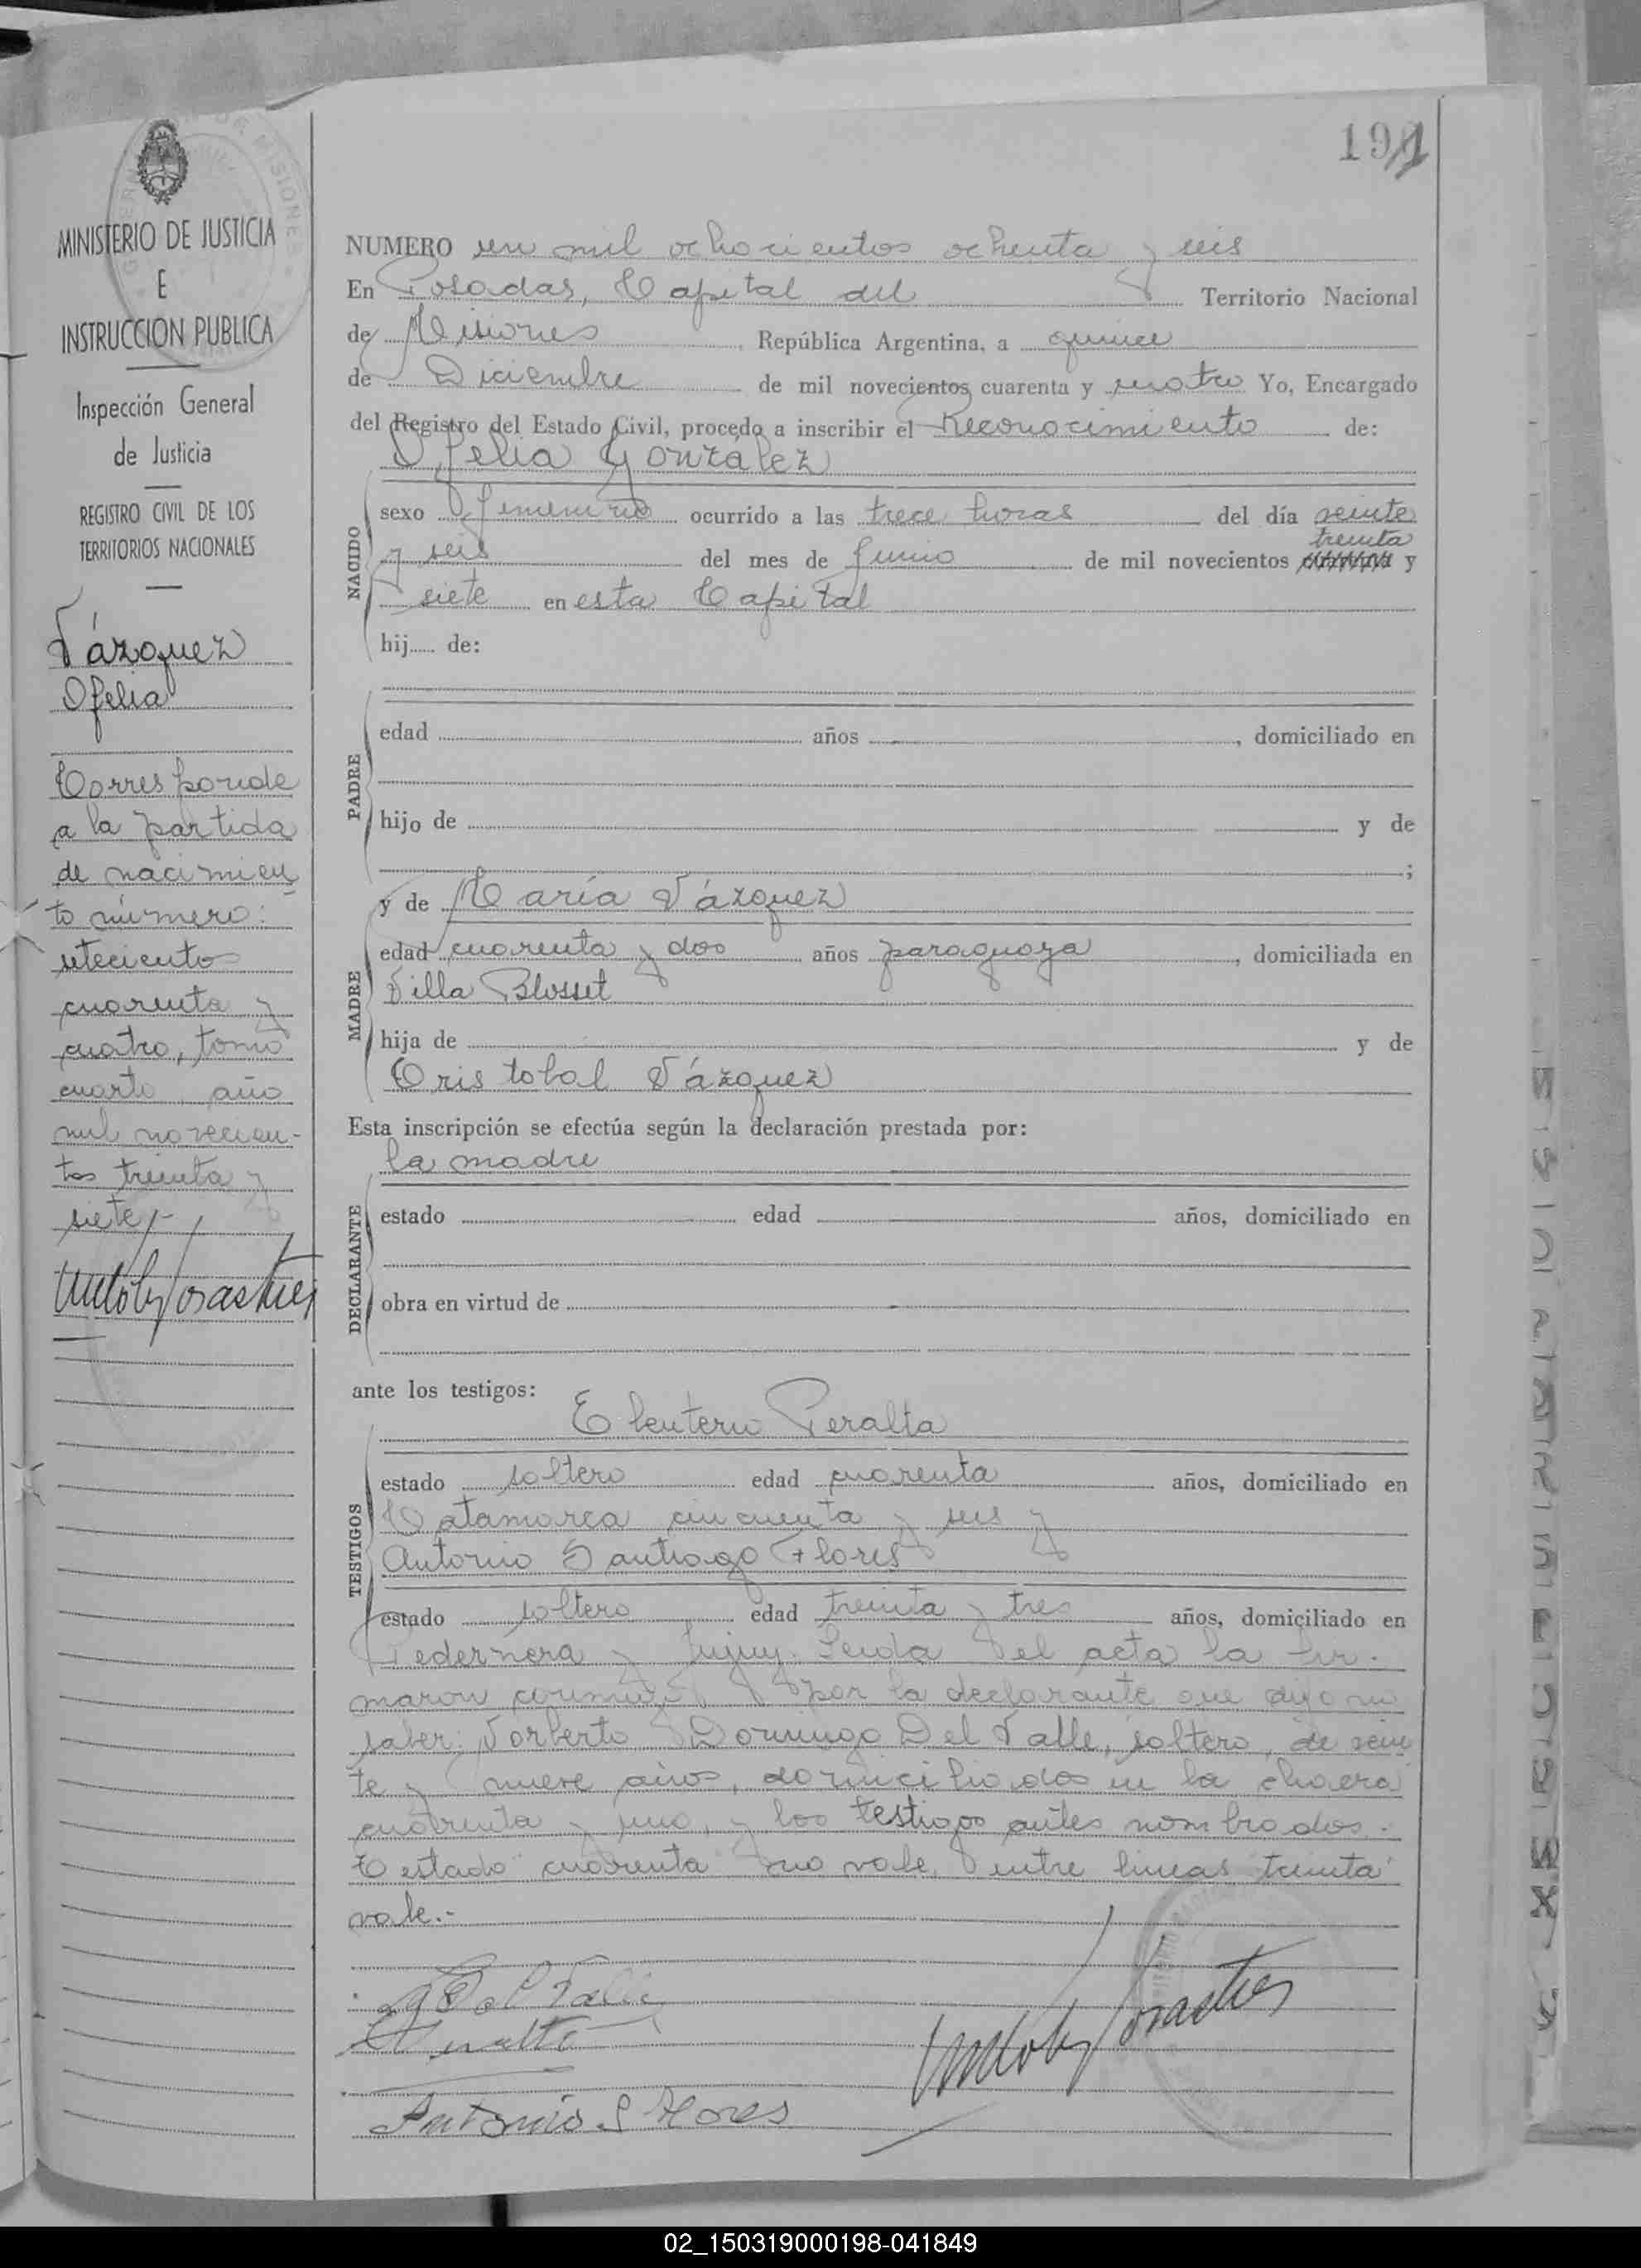 191
MINISTERIO DE JUSTICIA
E
INSTRUCCION PUBLICA
Inspección General
de Justicia
REGISTRO CIVIL DE LOS
TERRITORIOS NACIONALES
Vázquez
Ofelia
Corresponde
a la partida
de nacimien
to número:
setecientos
cuarenta y
cuatro, tomo
cuarto, año
mil novecien-
tos treinta y
siete.-
NUMERO un mil ochocientos ochenta y seis
En Posadas, Capital del Territorio Nacional
de Misiones República Argentina, a quince
de Diciembre de mil novecientos cuarenta y cuatro Yo, Encargado
del Registro del Estado Civil, procedo a inscribir el Reconocimiento de:
Ofelia González
NACIDO
sexo femenino ocurrido a las trece horas del día veinte
y seis del mes de Junio de mil novecientos treinta y
siete en esta Capital
hij de:
PADRE
edad años , domiciliado en
hijo de y de
;
MADRE
y de María Vázquez
edad cuarenta y dos años paraguaya , domiciliada en
Villa Blosset
hija de y de
Cristobal Vázquez
Esta inscripción se efectúa según la declaración prestada por:
la madre
DECLARANTE
estado edad años, domiciliado en
obra en virtud de
ante los testigos:
TESTIGOS
Eleuterio Peralta
estado soltero edad cuarenta años, domiciliado en
Catamarca cincuenta y seis y
Antonio Santiago Flores
estado soltero edad treinta y tres años, domiciliado en
Pedernera y Jujuy. Leida el acta la fir-
maron conmigo por la declarante que dijo no
saber: Norberto Domingo Del Valle, soltero, de vein
te y nueve años, domiciliados en la chacra
cuarenta y uno, y los testigos antes nombrados.
Testado cuarenta no vale, entre lineas treinta
vale.-
Del Valle
Peralta
Antonio S Flores
02_150319000198-041849